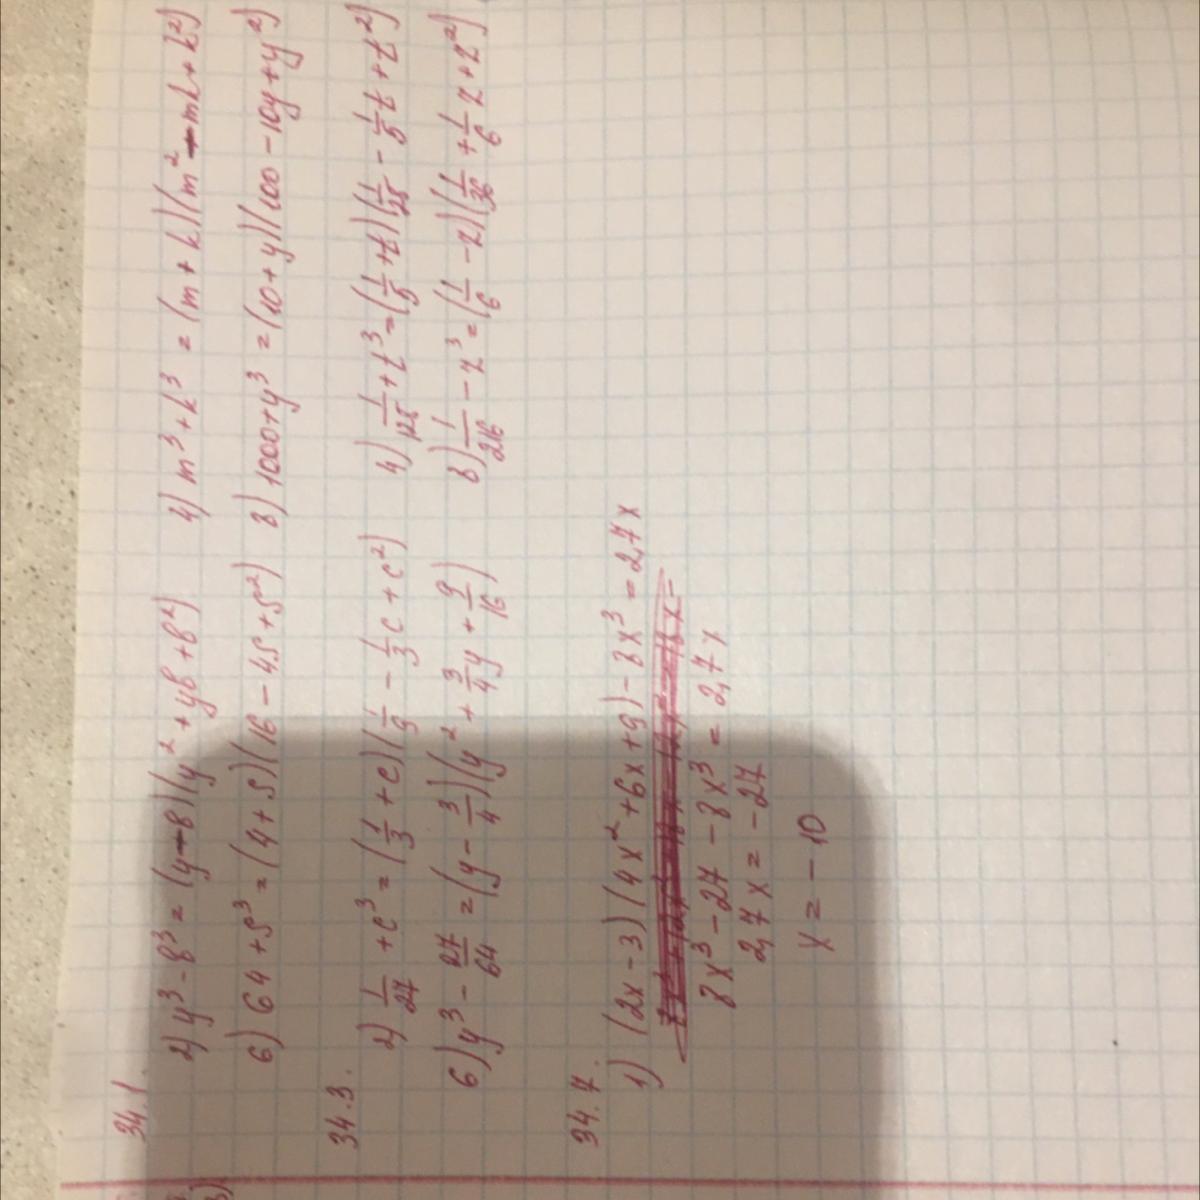 34.1
2) y³ - b³ = (y - b)(y² + yb + b²) 4) m³ + k³ = (m + k)(m² - mk + k²)
6) 64 + s³ = (4 + s)(16 - 4s + s²) 8) 1000 + y³ = (10 + y)(100 - 10y + y²)
34.3.
2) 1/27 + c³ = (1/3 + c)(1/9 - 1/3c + c²) 4) 1/125 + t³ = (1/5 + t)(1/25 - 1/5t + t²)
6) y³ - 27/64 = (y - 3/4)(y² + 3/4y + 9/16) 8) 1/216 - z³ = (1/6 - z)(1/36 + 1/6z + z²)
34.7.
1) (2x - 3)(4x² + 6x + 9) - 8x³ = 2,7x
8x³ - 27 - 8x³ = 2,7x
2,7x = -27
x = -10